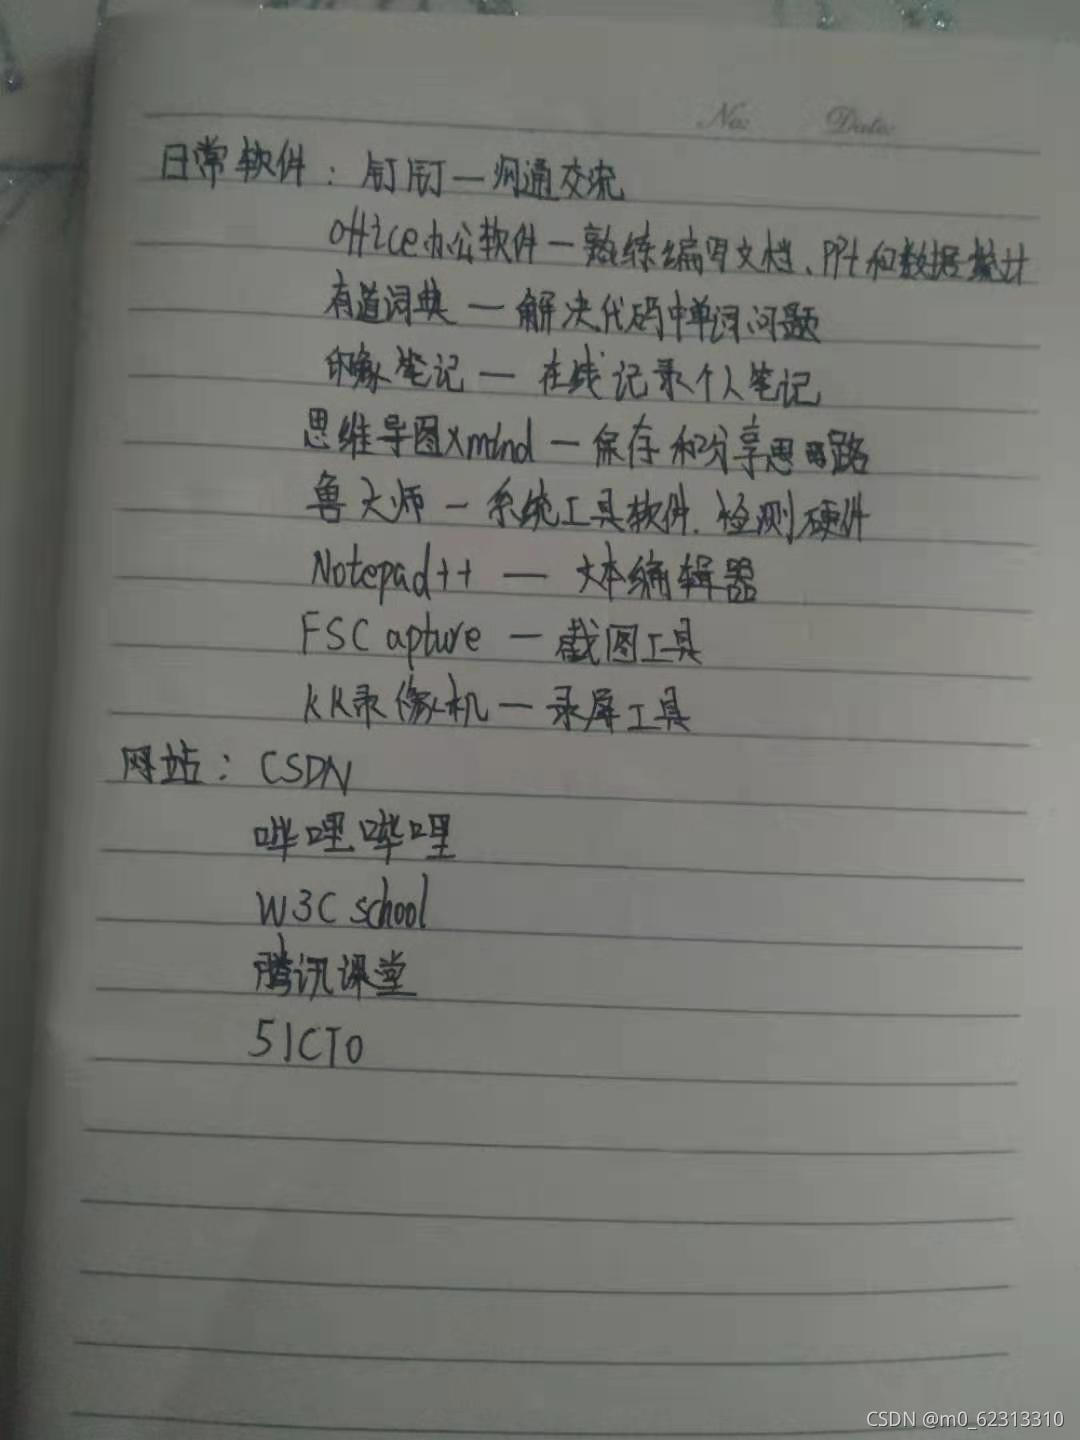 No: Date:
日常软件：钉钉—沟通交流
office办公软件—熟练编写文档、PPt和数据统计
有道词典—解决代码中单词问题
印象笔记—在线记录个人笔记
思维导图Xmind—保存和分享思路
鲁大师—系统工具软件.检测硬件
Notepad++—文本编辑器
FSCapture—截图工具
KK录像机—录屏工具
网站：CSDN
哔哩哔哩
W3C school
腾讯课堂
51CTO
CSDN @m0_62313310